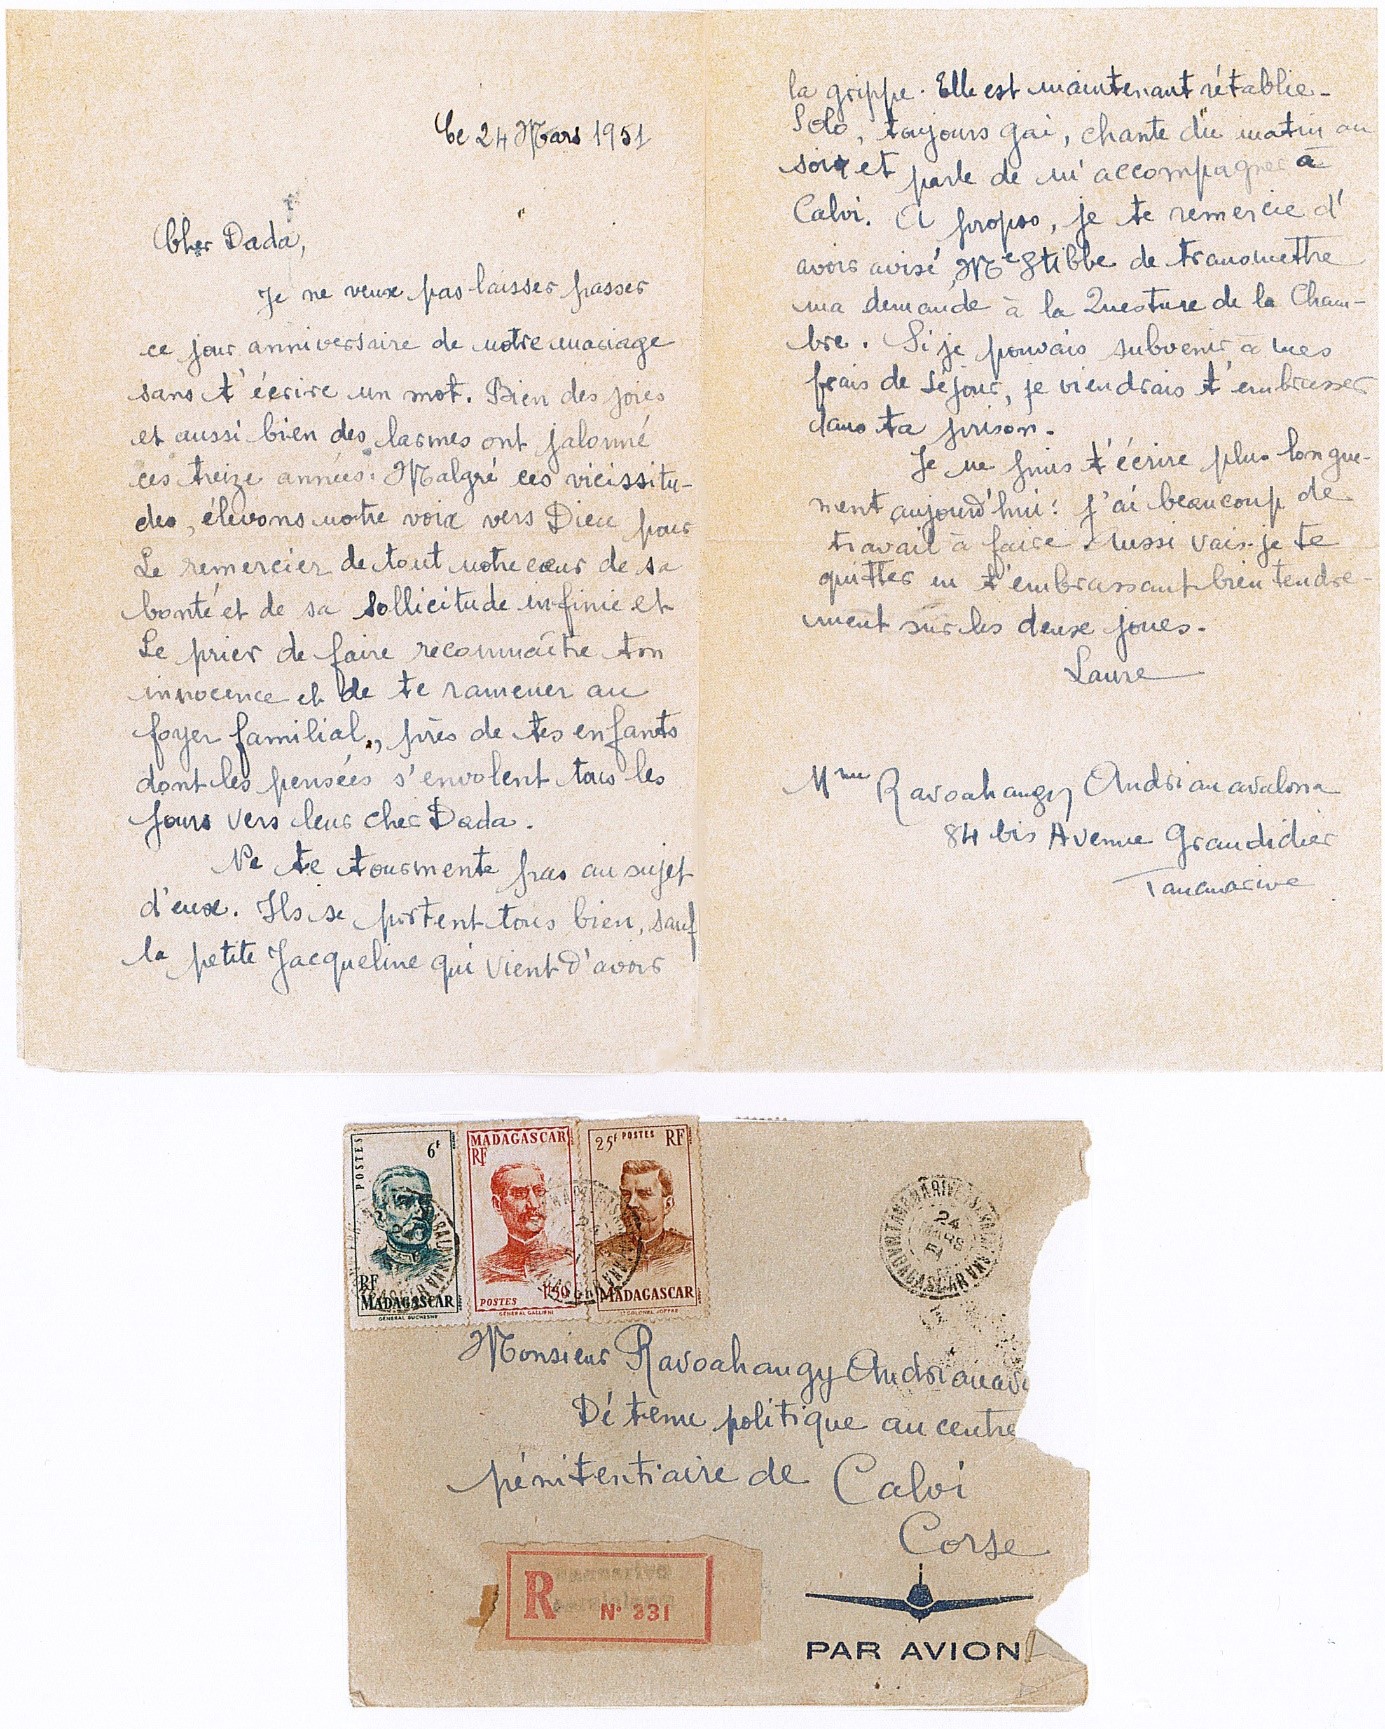 Le 24 Mars 1951
Cher Dada,
Je ne veux pas laisser passer
ce jour anniversaire de notre mariage
sans t'écrire un mot. Bien des joies
et aussi bien des larmes ont jalonné
ces treize années. Malgré ces vicissitu-
des, élevons notre voix vers Dieu pour
Le remercier de tout notre cœur de sa
bonté et de sa sollicitude infinie et
Le prier de faire reconnaître ton
innocence et de te ramener au
foyer familial, près de tes enfants
dont les pensées s'envolent tous les
jours vers leur cher Dada.
Ne te tourmente pas au sujet
d'eux. Ils se portent tous bien, sauf
la petite Jacqueline qui vient d'avoir
la grippe. Elle est maintenant rétablie.
Solo, toujours gai, chante du matin au
soir et parle de m'accompagner à
Calvi. A propos, je te remercie d'
avoir avisé Me Stibbe de transmettre
ma demande à la Questure de la Cham-
bre. Si je pouvais subvenir à mes
frais de séjour, je viendrais t'embrasser
dans ta prison.
Je ne puis t'écrire plus longue-
ment aujourd'hui : j'ai beaucoup de
travail à faire. Aussi vais-je te
quitter en t'embrassant bien tendre-
ment sur les deux joues.
Laure
Mme Ravoahangy Andrianavalona
84 bis Avenue Grandidier
Tananarive
POSTES 6F
RF
MADAGASCAR
GÉNÉRAL DUCHESNE
MADAGASCAR
RF
1F50
POSTES
GÉNÉRAL GALLIENI
25F POSTES RF
MADAGASCAR
LT COLONEL JOFFRE
24
MARS
51
MADAGASCAR
Monsieur Ravoahangy Andrianav
Détenu politique au centre
pénitentiaire de Calvi
Corse
R N° 331
PAR AVION